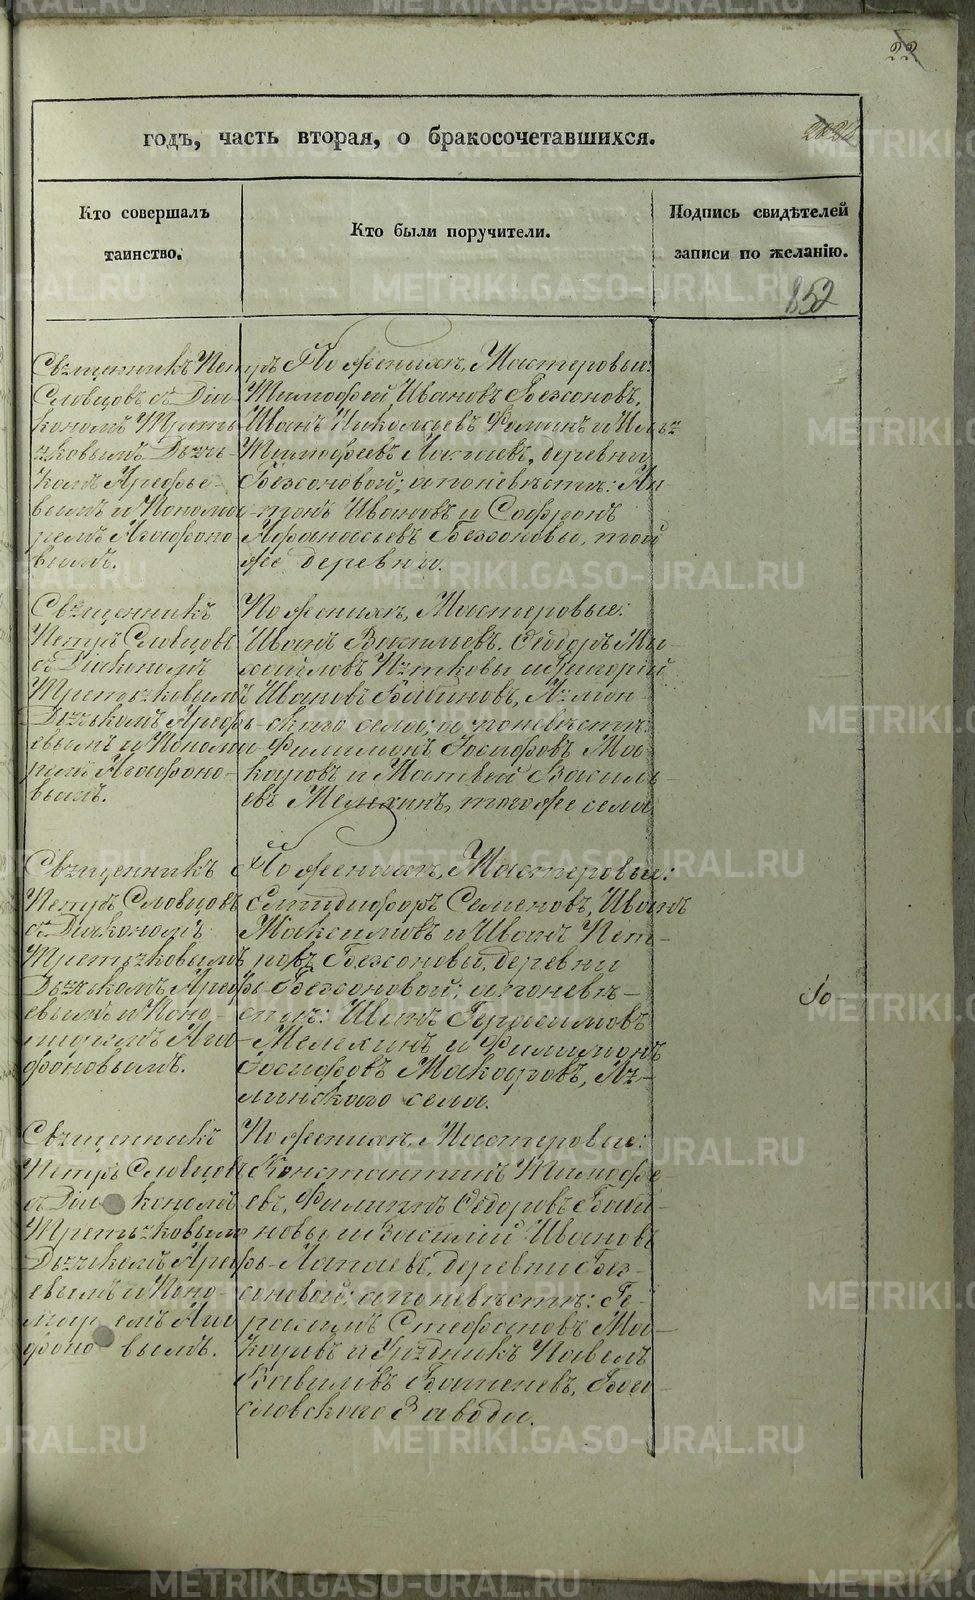 22
годъ, часть вторая, о бракосочетавшихся.
Кто совершалъ
таинство.
Кто были поручители.
Подпись свидѣтелей
записи по желанію.
852
Священникъ Петръ
Словцовъ съ Діа-
кономъ Треть-
яковымъ Дьячь-
комъ Арефье-
вымъ и Понома-
ремъ Агафоно-
вымъ.
По женихѣ, Мастеровые:
Тимофей Ивановъ Безсоновъ,
Иванъ Николаевъ Фоминъ и Илья
Тимофеевъ Лапаевъ, деревни
Безсоновой; а по невѣстѣ: Ан-
тонъ Ивановъ и Софронъ
Афанасьевъ Безсоновы, той
же деревни.
Священникъ
Петръ Словцовъ
съ Діакономъ
Третьяковымъ
Дьячькомъ Арефь-
евымъ и Понома-
ремъ Агафоно-
вымъ.
По женихѣ, Мастеровые:
Иванъ Васильевъ, Ѳедоръ Ми-
хайловъ Пятковы и Григорій
Ивановъ Бабиновъ, Лялин-
скаго села; а по невѣстѣ:
Филимонъ Іосифовъ Ма-
каровъ и Матвей Василь-
евъ Мелехинъ, того же села
Священникъ
Петръ Словцовъ
съ Діакономъ
Третьяковымъ
Дьячькомъ Арефь-
евымъ и Поно-
маремъ Ага-
фоновымъ.
По женихѣ, Мастеровые:
Семеновъ, Иванъ
Максимовъ и Иванъ Пет-
ровъ Безсоновы, деревни
Безсоновой; а по невѣ-
стѣ: Иванъ Герасимовъ
Мелехинъ и Филимонъ
Іосифовъ Макаровъ, Ля-
линскаго села.
Священникъ
Петръ Словцовъ
съ Діакономъ
Третьяковымъ
Дьячикомъ Арефь-
евымъ и Поно-
маремъ Ага-
фоновымъ.
По женихѣ, Мастеровые:
Константинъ Тимофе-
евъ, Филиппъ Ѳедоровъ Баби-
новы и Василій Ивановъ
Лапаевъ, деревни Без-
соновой; а по невѣстѣ: Ге-
расимъ Стефановъ Ма-
каровъ и Урядникъ Павелъ
Вавиловъ Ботеневъ, Бого-
словскаго Завода.
METRIKI.GASO-URAL.RU